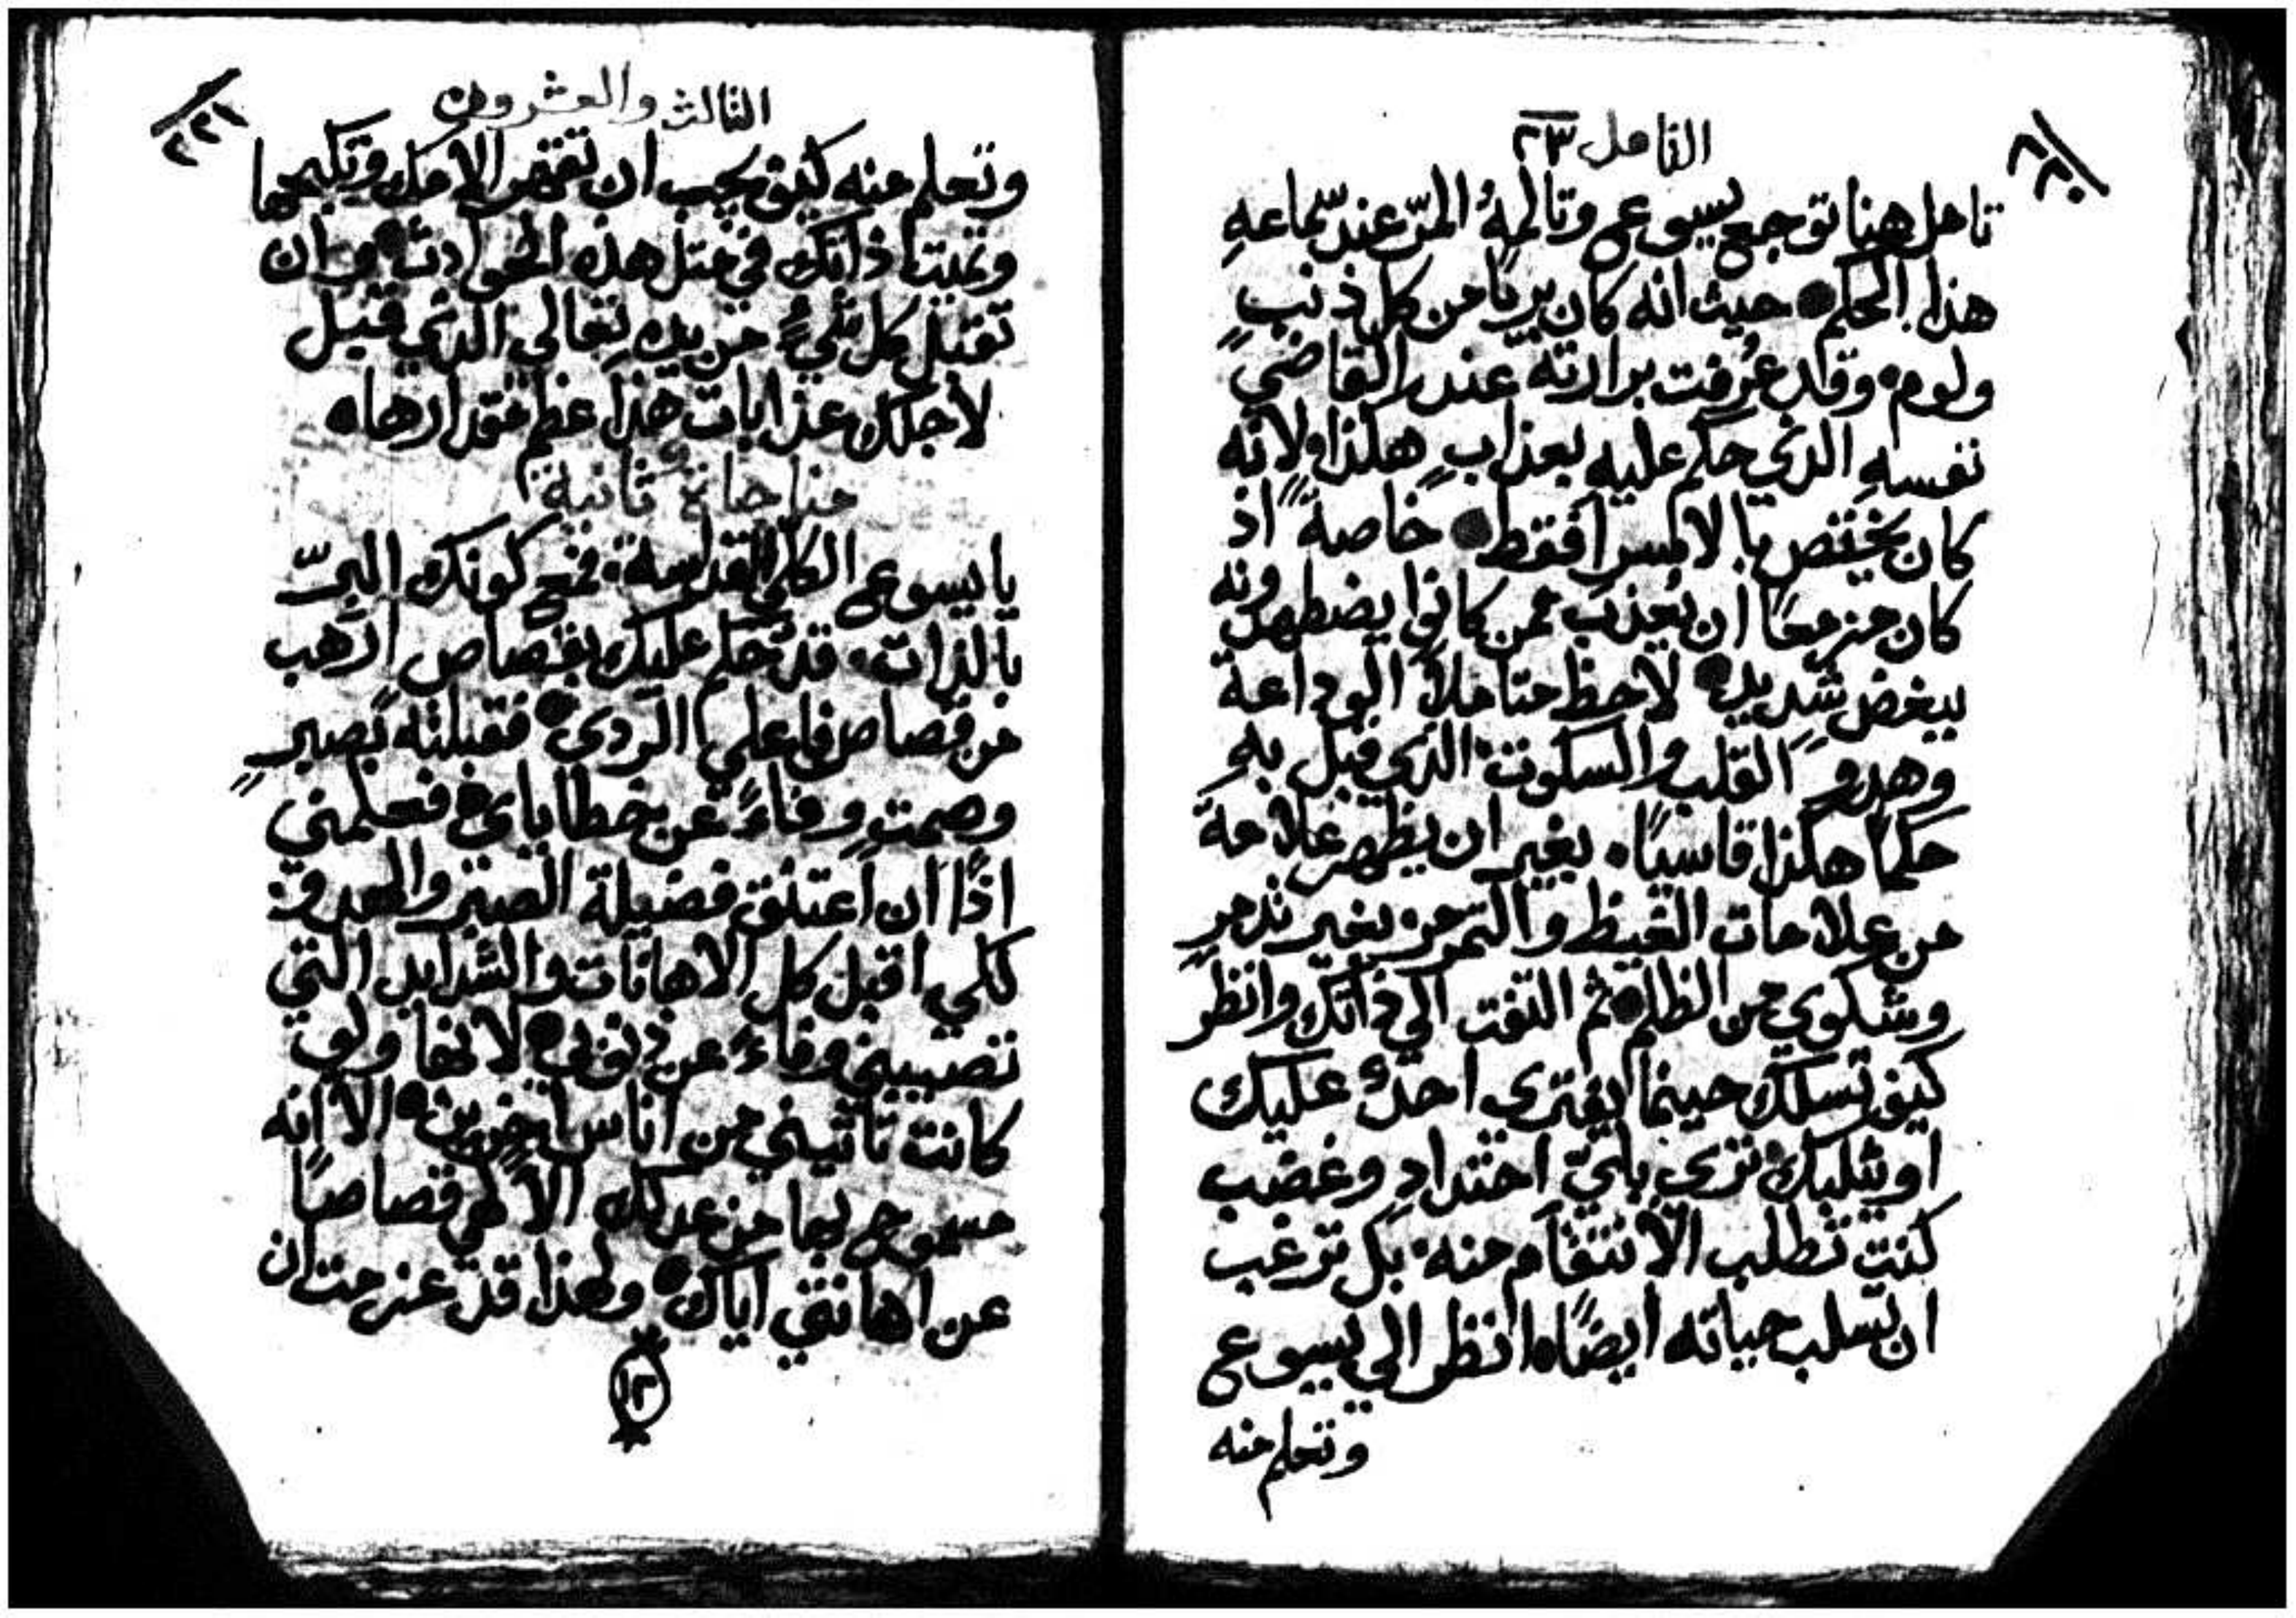 ٢٢٠
التامل ٢٣
تامل هنا توجع يسوع وتالمهُ المرّ عند سماعهِ
هذا الحكم حيث انه كان بريا من كل ذنبٍ
ولوم وقد عُرفت برارته عند القاضي
نفسهِ الذي حكم عليه بعذابٍ هكذا ولانه
كان يختص بالا فقط خاصةً اذ
كان مزمعًا ان يُعذب ممن كانوا يضطهدونه
ببغض شديدٍ لاحظ متاملاً الوداعة
وهدوَ القلب والسكوت الذي قبل بهِ
حكمًا هكذا قاسيًا بغير ان يظهر علامةً
من علامات الغيظ والتمرمر بغير تذمرٍ
وشكوي من الظلم ثم التفت الي ذاتك وانظر
كيف تسلك حينما يفتري احدٌ عليك
او يثلبك تري باي احتدادٍ وغضب
كنت تطلب الانتقام منه بل ترغب
ان تسلب حياته ايضًا انظر الي يسوع
وتعلم منه
الثالث والعشرون
٢٢١
وتعلم منه كيف يجب ان تقهر الامك وتكبحها
وتميت ذاتك في مثل هذه الحوادث وان
تقتبل كل شيءٍ من يدهِ تعالي الذي قبل
لاجلك عذابات هذا عظم مقدارها
مناجاةٌ ثانية
يا يسوع الكلي القداسة فمع كونك البرّ
بالذات قد حُكم عليك بقصاص ارهب
من قصاص فاعلي الردي فقبلته بصبرٍ
وصمتٍ وفاءً عن خطاياي فعلمني
اذًا ان اعتنق فضيلة الصبر والهدو
لكي اقبل كل الاهانات والشدايد التي
تصيبني وفاءً عن ذنوبي لانها ولو
كانت تاتيني من اناس اخرين الا انه
مسموح بها من عدلك الالهي قصاصًا
عن اهانتي اياك ولهذا قد عزمت ان
١٢